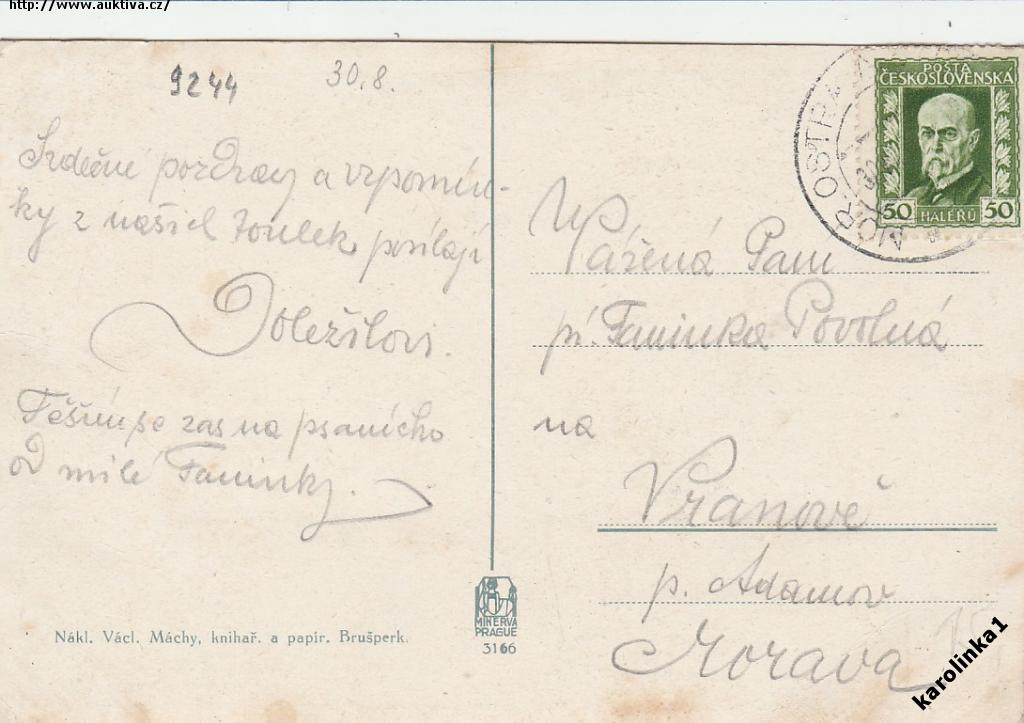 http://www.auktiva.cz/
9244
30.8.
Srdečné pozdravy a vzpomín-
ky z našich toulek posílají
Doležilovi.
Těším se zas na psaníčko
od milé Faninky.
Nákl. Václ. Máchy, knihař. a papír. Brušperk.
MINERVA
PRAGUE
3166
POŠTA
ČESKOSLOVENSKÁ
50 HALÉŘŮ 50
MOR. OSTRA
Vážená Paní
pí. Faninka Povolná
na
Vranově
p. Adamov
Morava
karolinka1